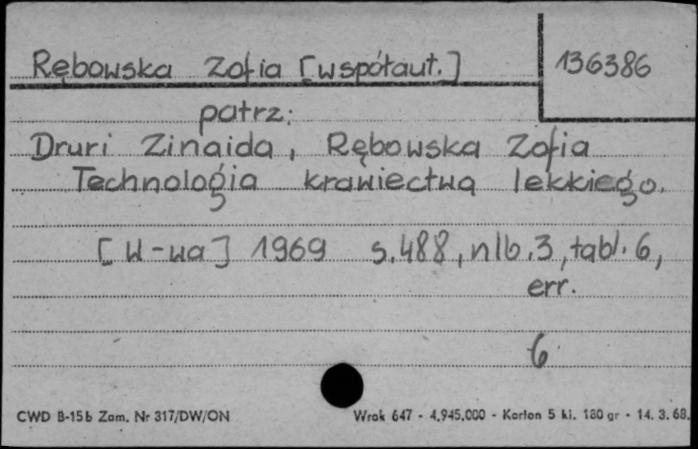 Rębowska Zofia [współaut.]
136386
patrz:
Druri Zinaida, Rębowska Zofia
Technologia krawiectwa lekkiego.
[W-wa] 1969 s.488, nlb.3, tabl.6,
err.
6
CWD B-15b Zam. Nr 317/DW/ON
Wrok 647 - 4.945.000 - Karton 5 kl. 180 gr - 14. 3. 68.